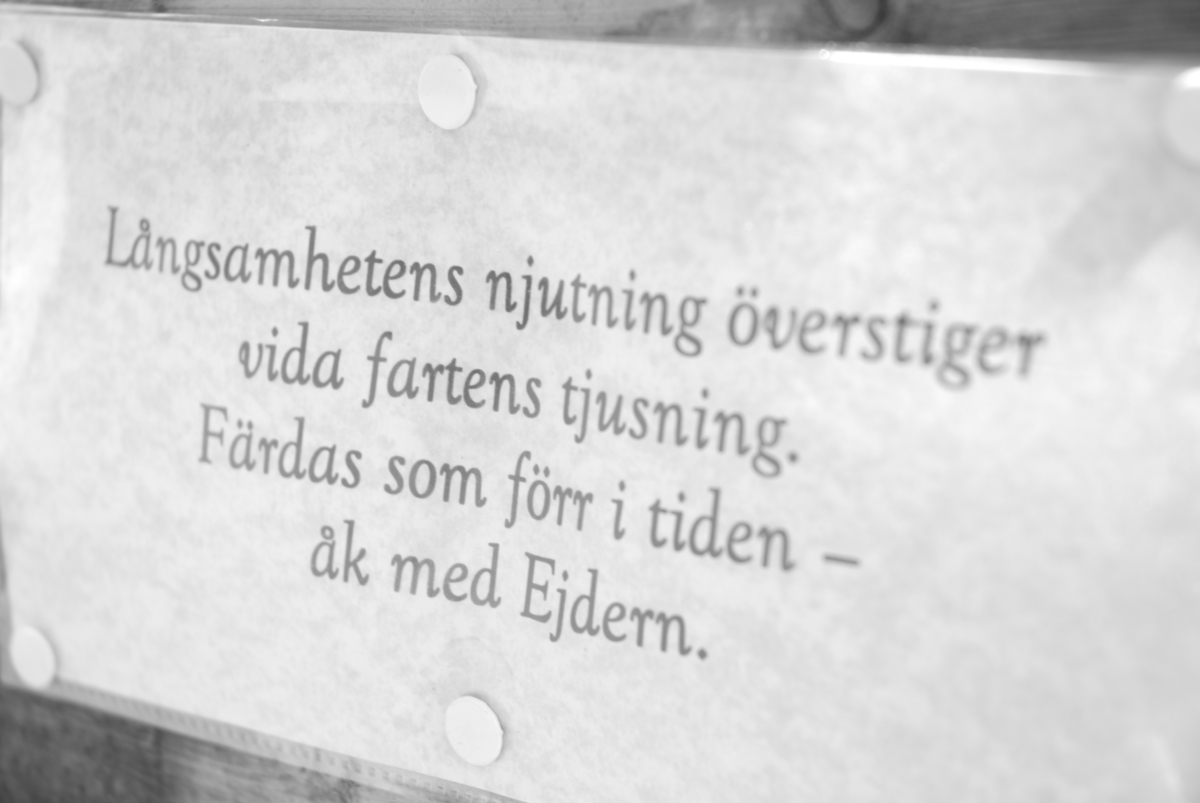 Långsamhetens njutning överstiger
vida fartens tjusning.
Färdas som förr i tiden –
åk med Ejdern.